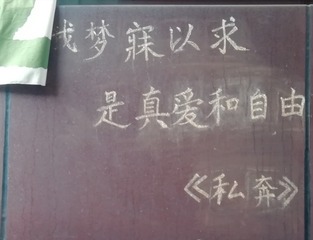 我梦寐以求
是真爱和自由
《私奔》